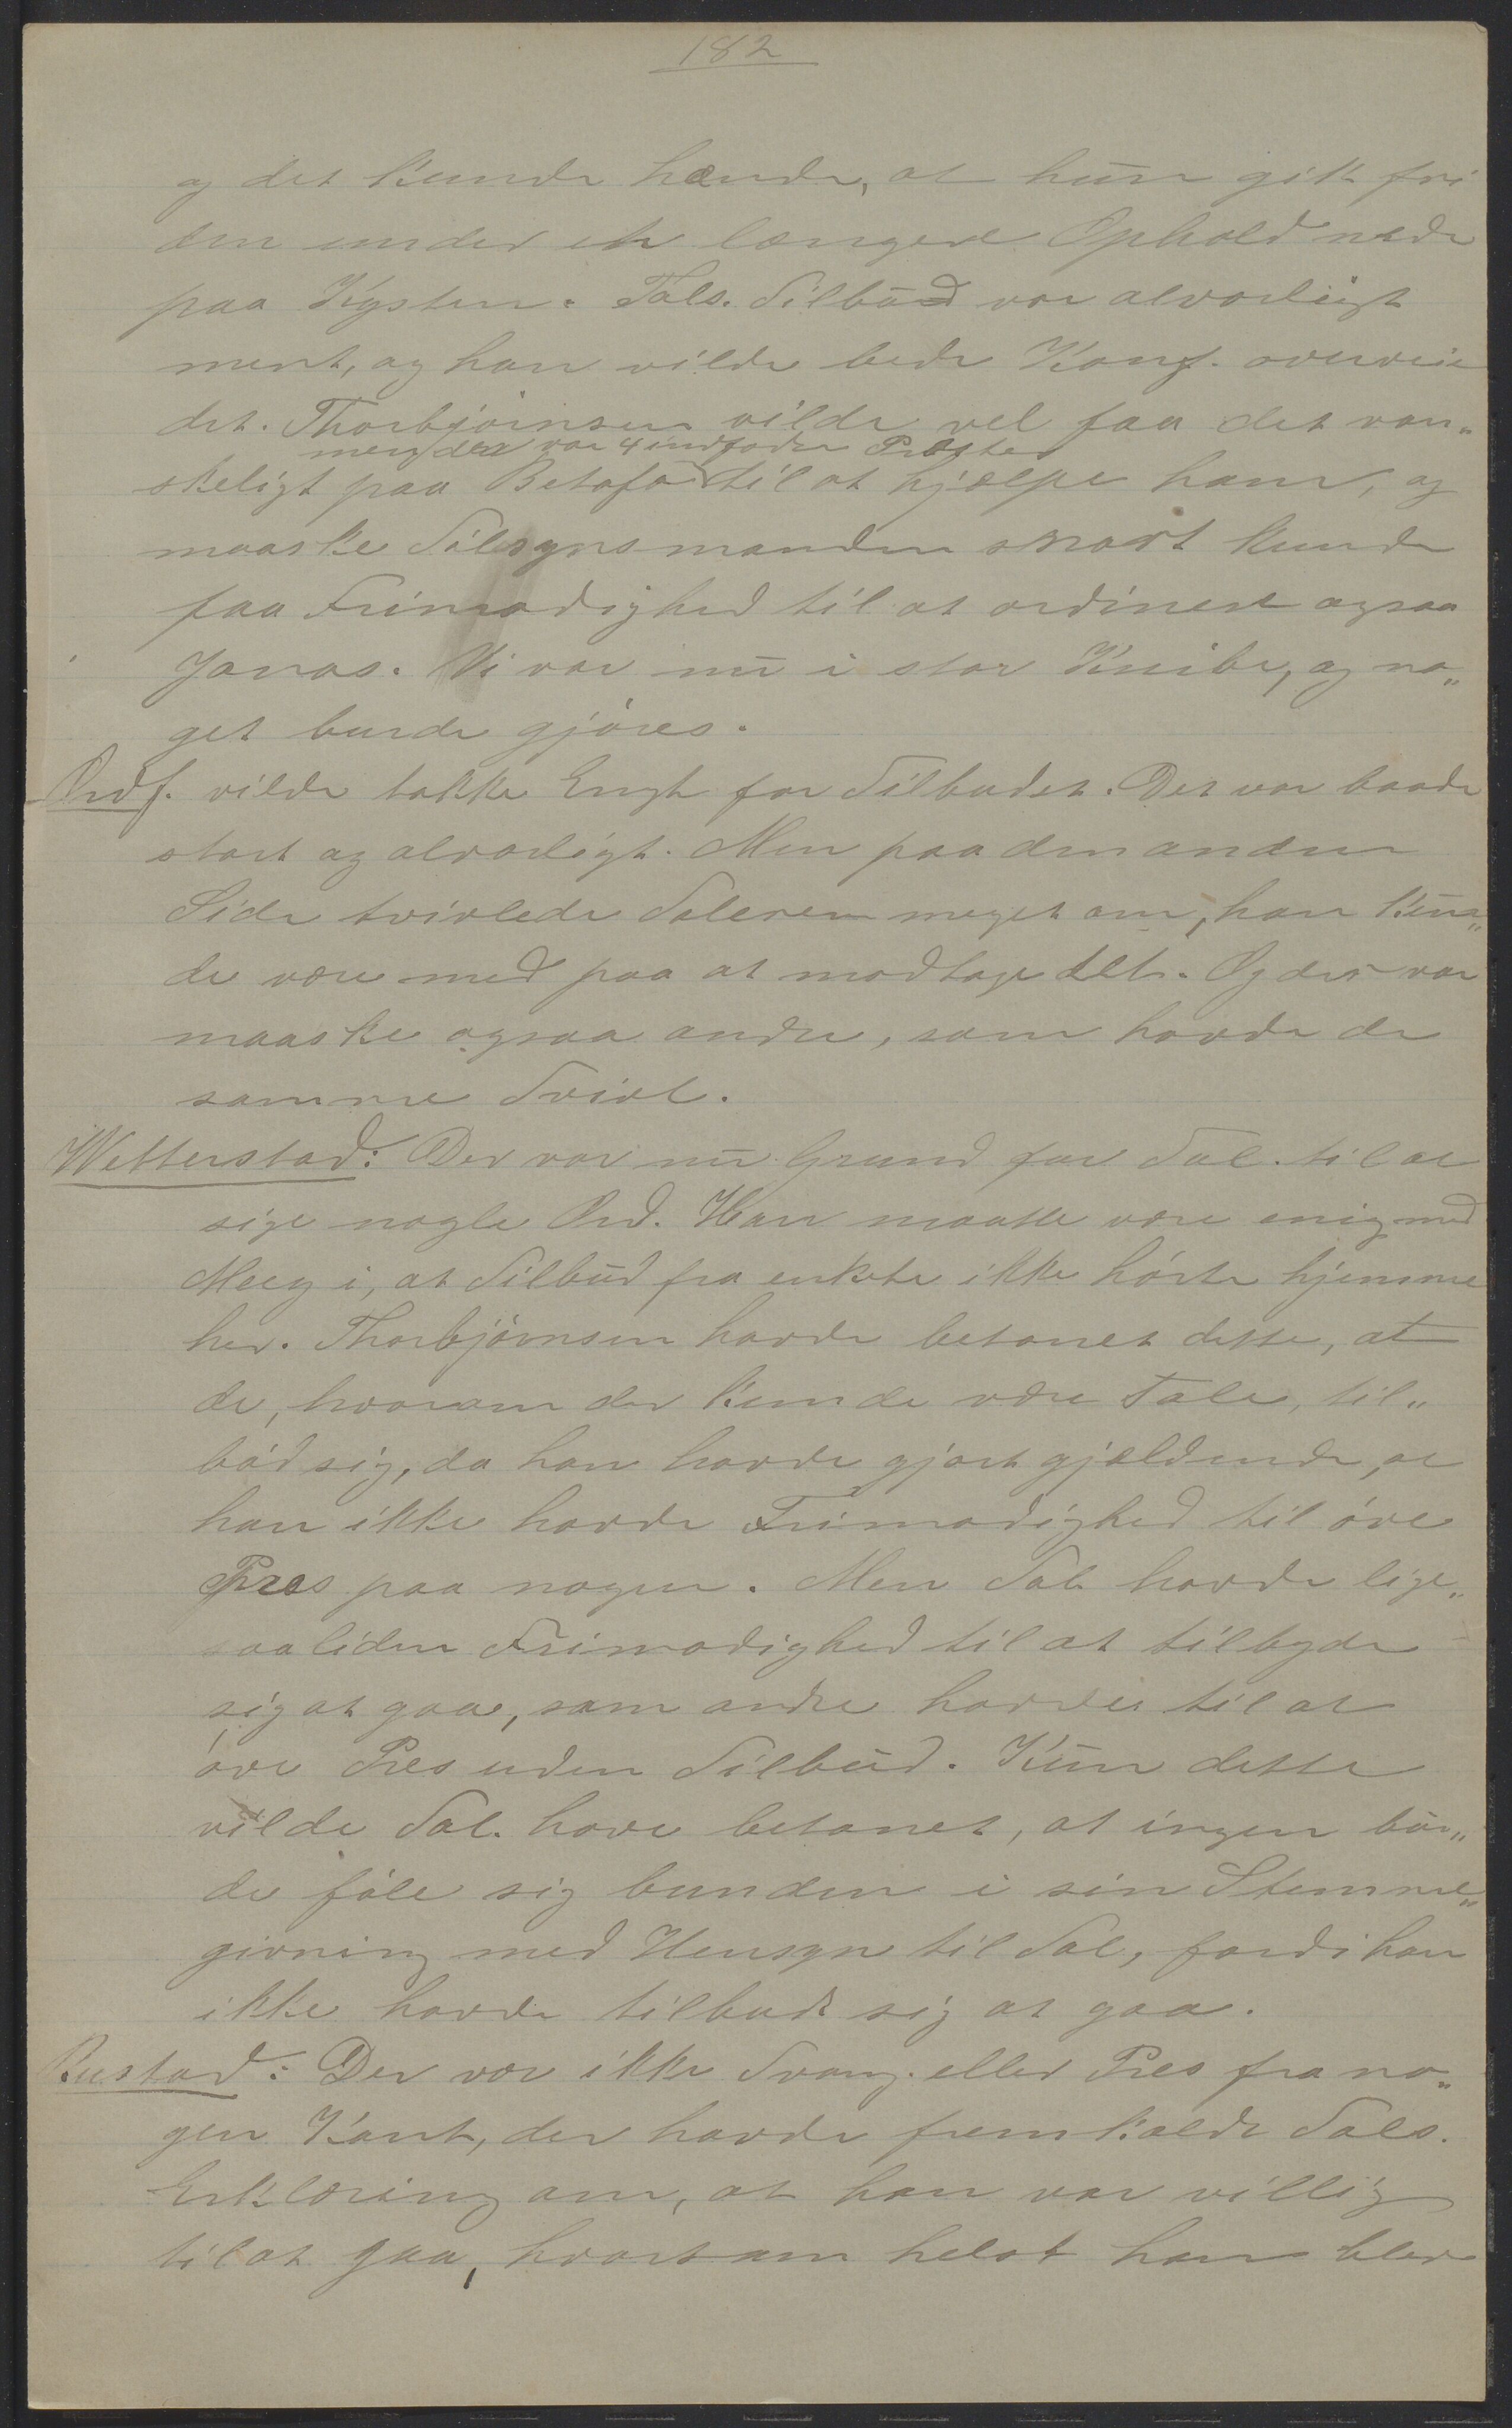 182
og det kunde hænde, at hun gik fri
den under et længere Ophold nede
paa Kysten. Tals. Tilbud var alvorligt
ment, og han vilde bede Konf. overveie
det. Thorbjörnsen vilde vel faa det van„
men der var 4 indfödte Prester
skeligt paa Betafo til at hjælpe ham, og
maaske Tilsynsmanden snart kunde
faa Frimodighed til at ordinere ogsaa
Jonas. Vi var nu i stor Knibe, og no„
get burde gjöres.
Ordf. vilde takke Engh for Tilbudet. Det var baade
stort og alvorligt. Men paa den anden
Side tvivlede Taleren meget om, han kun„
de være med paa at modtage det. Og der var
maaske ogsaa andre, som havde de
samme Tvivl.
Wetterstad: Der var nu Grund for Tal. til at
sige nogle Ord. Han maatte være enig med
Meeg i, at Tilbud fra enkelte ikke hörte hjemme
her. Thorbjörnsen havde betonet dette, at
de, hvorom der kunde være Tale, til„
böd sig, da han havde gjort gjældende, at
han ikke havde Frimodighed til öve
Pres paa nogen. Men Tal. havde lige„
saaliden Frimodighed til at tilbyde
sig at gaa, som andre havde til at
öve Pres uden Tilbud. Kun dette
vilde Tal. have betonet, at ingen bur„
de föle sig bunden i sin Stemme„
givning med Hensyn til Tal, fordi han
ikke havde tilbudt sig at gaa.
Rustad: Der var ikke Tvang eller Pres fra no„
gen Kant, der havde fremkaldt Tals.
Erklæring om, at han var villig
til at gaa, hvorsom helst han blev